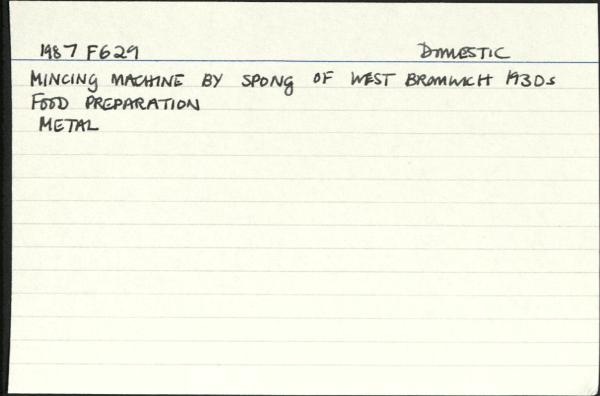 1987 F629 DOMESTIC
MINCING MACHINE BY SPONG OF WEST BROMWICH 1930s
FOOD PREPARATION
METAL